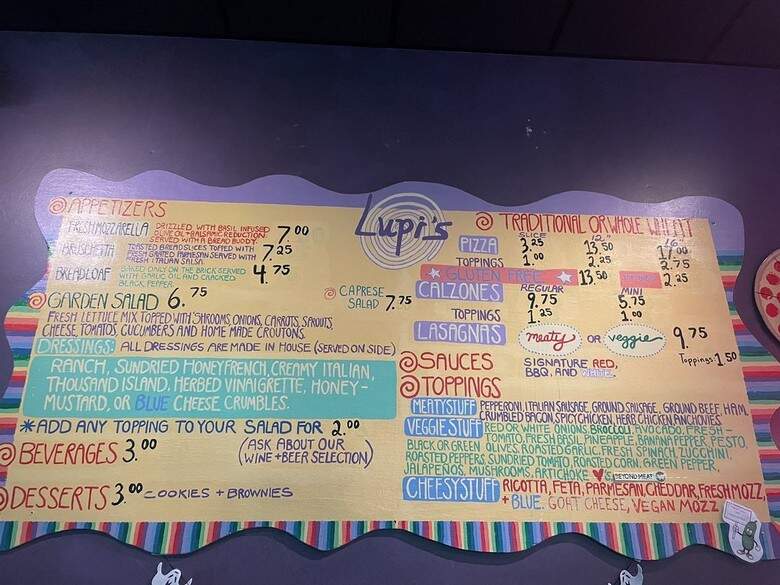 Lupi's
APPETIZERS
FRESH MOZZARELLA DRIZZLED WITH BASIL INFUSED 7.00
OLIVE OIL + BALSAMIC REDUCTION
SERVED WITH A BREAD BUDDY.
BRUSCHETTA TOASTED BREAD SLICES TOPPED WITH 7.25
FRESH GRATED PARMESAN SERVED WITH
FRESH ITALIAN SALSA.
BREADLOAF BAKED ONLY ON THE BRICK SERVED 4.75
WITH GARLIC OIL AND CRACKED
BLACK PEPPER
GARDEN SALAD 6.75
CAPRESE
SALAD 7.75
FRESH LETTUCE MIX TOPPED WITH 'SHROOMS, ONIONS, CARROTS, SPROUTS,
CHEESE, TOMATOS, CUCUMBERS AND HOME MADE CROUTONS.
DRESSINGS: ALL DRESSINGS ARE MADE IN HOUSE (SERVED ON SIDE)
RANCH, SUNDRIED HONEY FRENCH, CREAMY ITALIAN,
THOUSAND ISLAND, HERBED VINAIGRETTE, HONEY-
MUSTARD, OR BLUE CHEESE CRUMBLES.
*ADD ANY TOPPING TO YOUR SALAD FOR 2.00
BEVERAGES 3.00 (ASK ABOUT OUR
WINE + BEER SELECTION)
DESSERTS 3.00 - COOKIES + BROWNIES
TRADITIONAL OR WHOLE WHEAT
SLICE 12" 16"
PIZZA 3.25 13.50 17.00
TOPPINGS 1.00 2.25 2.75
GLUTEN FREE 13.50 2.25
REGULAR MINI
CALZONES 9.75 5.75
TOPPINGS 1.25 1.00
LASAGNAS meaty OR veggie 9.75
Toppings 1.50
SAUCES SIGNATURE RED,
BBQ, AND WHITE
TOPPINGS
MEATY STUFF PEPPERONI, ITALIAN SAUSAGE, GROUND SAUSAGE, GROUND BEEF, HAM,
CRUMBLED BACON, SPICY CHICKEN, HERB CHICKEN, ANCHOVIES
VEGGIE STUFF RED OR WHITE ONIONS, BROCCOLI, AVOCADO, FRESH-
TOMATO, FRESH BASIL, PINEAPPLE, BANANA PEPPER, PESTO,
BLACK OR GREEN OLIVES, ROASTED GARLIC, FRESH SPINACH, ZUCCHINI,
ROASTED PEPPERS, SUNDRIED TOMATO, ROASTED CORN, GREEN PEPPER,
JALAPEÑOS, MUSHROOMS, ARTICHOKE ♥'S, BEYOND MEAT
CHEESY STUFF RICOTTA, FETA, PARMESAN, CHEDDAR, FRESH MOZZ,
+ BLUE, GOAT CHEESE, VEGAN MOZZ